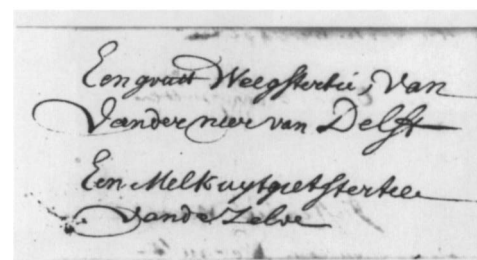 Een graat Weegstertie, Van
Vander neer van Delft
Een Melkuytgietstertie
Vande Zelve